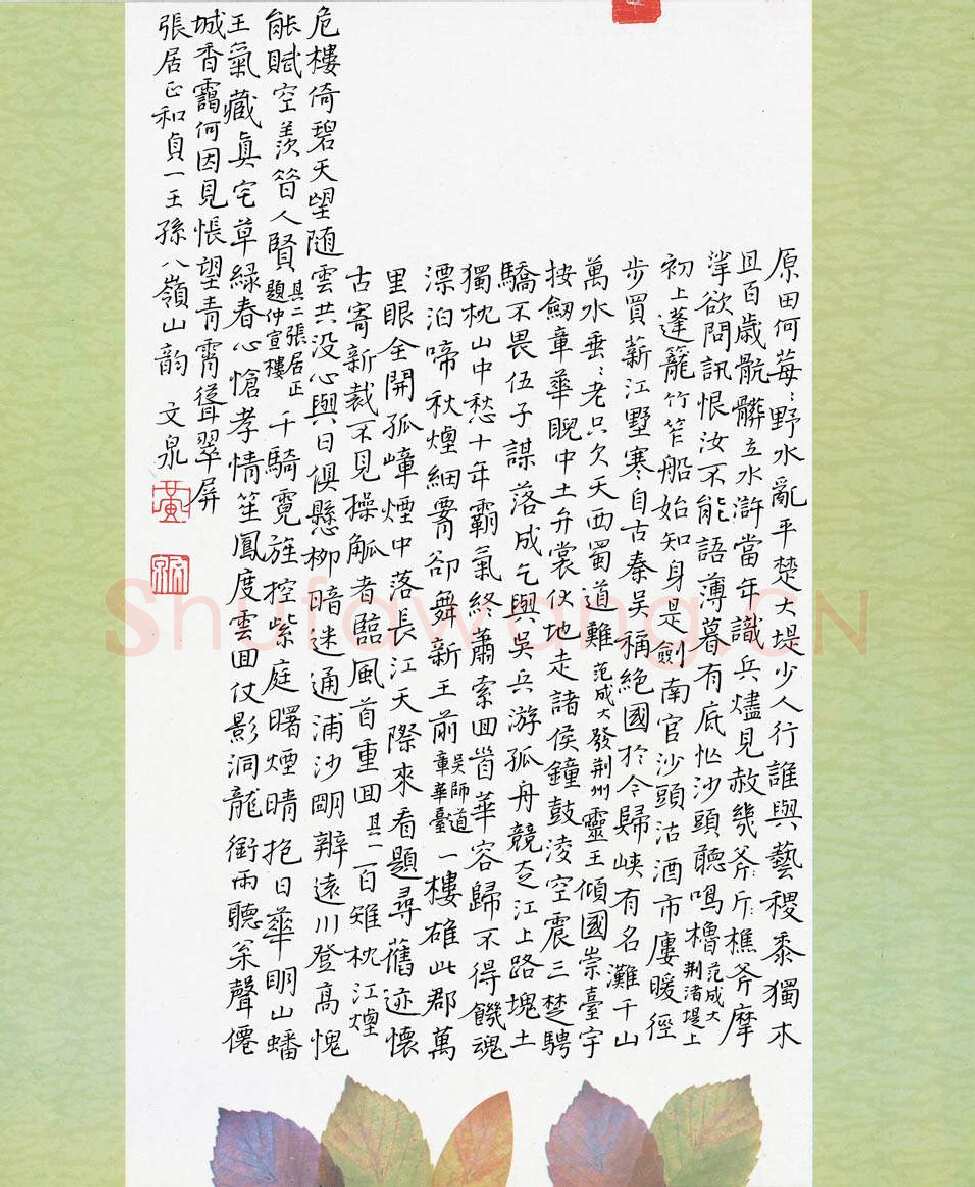 原田何莓:野水亂平楚大堤少人行誰與藝稷黍獨木
且百歲骯髒立水滸當年識兵燼見赦幾斧:斤:樵斧摩
挲欲問訊恨汝不能語薄暮有底忙沙頭聽鳴櫓范成大荆渚堤上
初上蓬籠竹笮船始知身是劍南官沙頭沽酒市廔暖徑
步買薪江墅寒自古秦吳稱絶國於今歸峽有名灘千山
萬水垂:老只欠天西蜀道難范成大發荆州靈王傾國崇臺宇
按劔章華睨中土弁裳伏地走諸侯鐘鼓淩空震三楚騁
驕不畏伍子謀落成乞與吳兵游孤舟競夜江上路塊土
獨枕山中愁十年霸氣終蕭索回首華容歸不得饑魂
漂泊啼秋煙細腰卻舞新王前吳師道章華臺一樓雄此郡萬
里眼全開孤嶂煙中落長江天際來看題尋舊迹懷
古寄新裁不見操觚者臨風首重回其一百雉枕江煙
危樓倚碧天望随雲共没心與日俱懸柳暗迷通浦沙明辨遠川登高愧
能賦空羨昔人賢其二張居正題仲宣樓千騎霓旌控紫庭曙煙晴抱日華明山蟠
王氣藏真宅草緑春心愴孝情笙鳳度雲回仗影洞龍銜雨聽泉聲僊
城香靄何因見悵望青霄聳翠屏
張居正和貞一王孫八嶺山韵 文泉
黄
Shufawang.CN